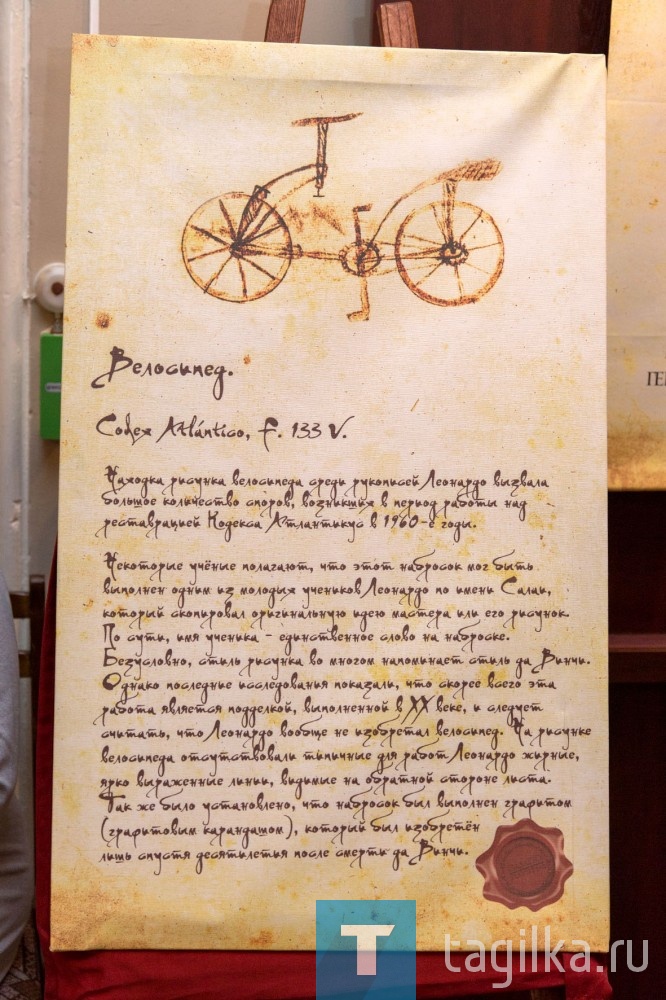 Велосипед.
Codex Atlántico, f. 133 v.
Находка рисунка велосипеда среди рукописей Леонардо вызвала
большое количество споров, возникших в период работы над
реставрацией Кодекса Атлантикус в 1960-е годы.
Некоторые учёные полагают, что этот набросок мог быть
выполнен одним из молодых учеников Леонардо по имени Салаи,
который скопировал оригинальную идею мастера или его рисунок.
По сути, имя ученика - единственное слово на наброске.
Безусловно, стиль рисунка во многом напоминает стиль да Винчи.
Однако последние исследования показали, что скорее всего эта
работа является подделкой, выполненной в XX веке, и следует
считать, что Леонардо вообще не изобретал велосипед. На рисунке
велосипеда отсутствовали типичные для работ Леонардо жирные,
ярко выраженные линии, видимые на обратной стороне листа.
Так же было установлено, что набросок был выполнен графитом
(графитовым карандашом), который был изобретён
лишь спустя десятилетия после смерти да Винчи.
T tagilka.ru